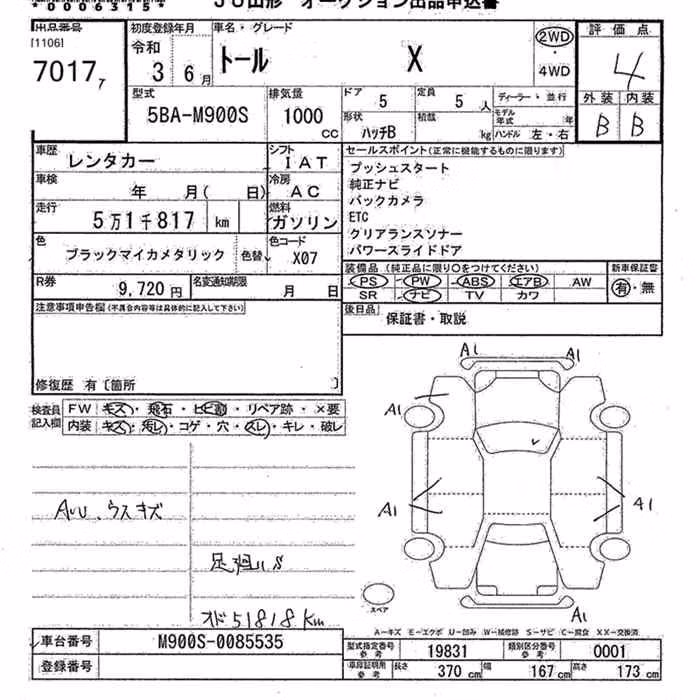 *0006315*
JU山形 オークション出品申込書
出品番号
[1106]
7017 7
初度登録年月
令和 3 6月
車名・グレード
トール X
2WD
・
4WD
評価点
4
外装 内装
B B
型式
5BA-M900S
排気量
1000 CC
ドア 5
定員 5 人
ディーラー・並行
形状 ハッチB
積載 kg
モデル年式 年
ハンドル 左・右
車歴
レンタカー
シフト
I AT
車検
年 月( 日)
冷房
AC
走行
5万1千817 km
燃料
ガソリン
色
ブラックマイカメタリック
色替
色コード
X07
R券
9,720 円
名変通知期限
月 日
セールスポイント(正常に機能するものに限ります)
プッシュスタート
純正ナビ
バックカメラ
ETC
クリアランスソナー
パワースライドドア
装備品(純正品に限り○をつけてください)
PS PW ABS エアB AW
SR ナビ TV カワ
新車保証書
有・無
後日品
保証書・取説
注意事項申告欄(不具合内容等は具体的に記入して下さい)
修復歴 有〔箇所 〕
検査員記入欄
FW キズ・飛石・ヒビ割・リペア跡・×要
内装 キズ・汚レ・コゲ・穴・スレ・キレ・破レ
A1
A1
A1
A1
A1
A1
AUU、ウスキズ
足廻りS
オド51818Km
スペア
A-キズ E-エクボ U-凹み W-補修跡 S-サビ C-腐食 XX-交換済
車台番号
M900S-0085535
登録番号
型式指定番号 参考
19831
類別区分番号 参考
0001
車庫証明用 参考
長さ 370 cm
幅 167 cm
高さ 173 cm